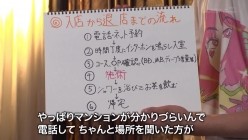 入店から退店までの流れ
① 電話・ネット予約
② 時間丁度にインターホンを鳴らし入室
③ コースの確認
④ 施術
⑤ シャワーを浴びてお茶を飲む
⑥ 帰宅
やっぱりマンションが分かりづらいんで
電話して ちゃんと場所を聞いた方が